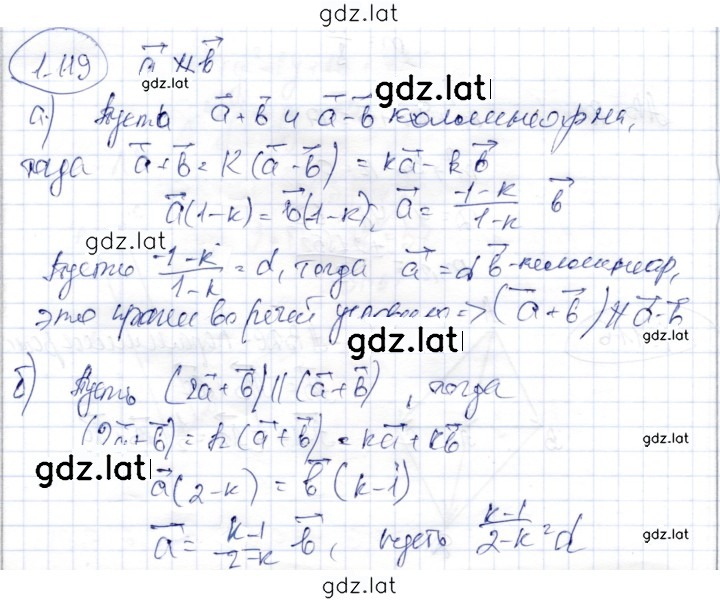 gdz.lat
1.119 a⃗ ∦ b⃗
gdz.lat
gdz.lat
а) Пусть a⃗ + b⃗ и a⃗ - b⃗ коллинеарны,
тогда a⃗ + b⃗ = k (a⃗ - b⃗) = ka⃗ - k b⃗
a⃗(1-k) = b⃗(-1-k), a⃗ = \frac{-1-k}{1-k} b⃗
gdz.lat
Пусть \frac{-1-k}{1-k} = d, тогда a⃗ = d b⃗ - коллинеар,
это противоречит условию => (a⃗ + b⃗) ∦ a⃗ - b⃗
б) Пусть (2a⃗ + b⃗) || (a⃗ + b⃗), тогда
(2a⃗ + b⃗) = k (a⃗ + b⃗) = ka⃗ + kb⃗
gdz.lat
gdz.lat
a⃗ (2-k) = b⃗ (k-1)
a⃗ = \frac{k-1}{2-k} b⃗, пусть \frac{k-1}{2-k} = d
gdz.lat
gdz.lat